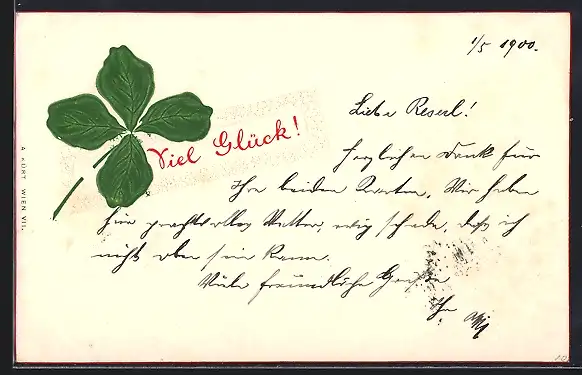 1/5 1900.
Viel Glück!
Liebe Reserl!
Herzlichen Dank für
Ihre beiden Karten, Wir haben
hier prachtvolles Wetter, ewig schade, daß ich
nicht oben sein kann.
Viele freundliche Grüße
Ihr
A. KURT WIEN VII.